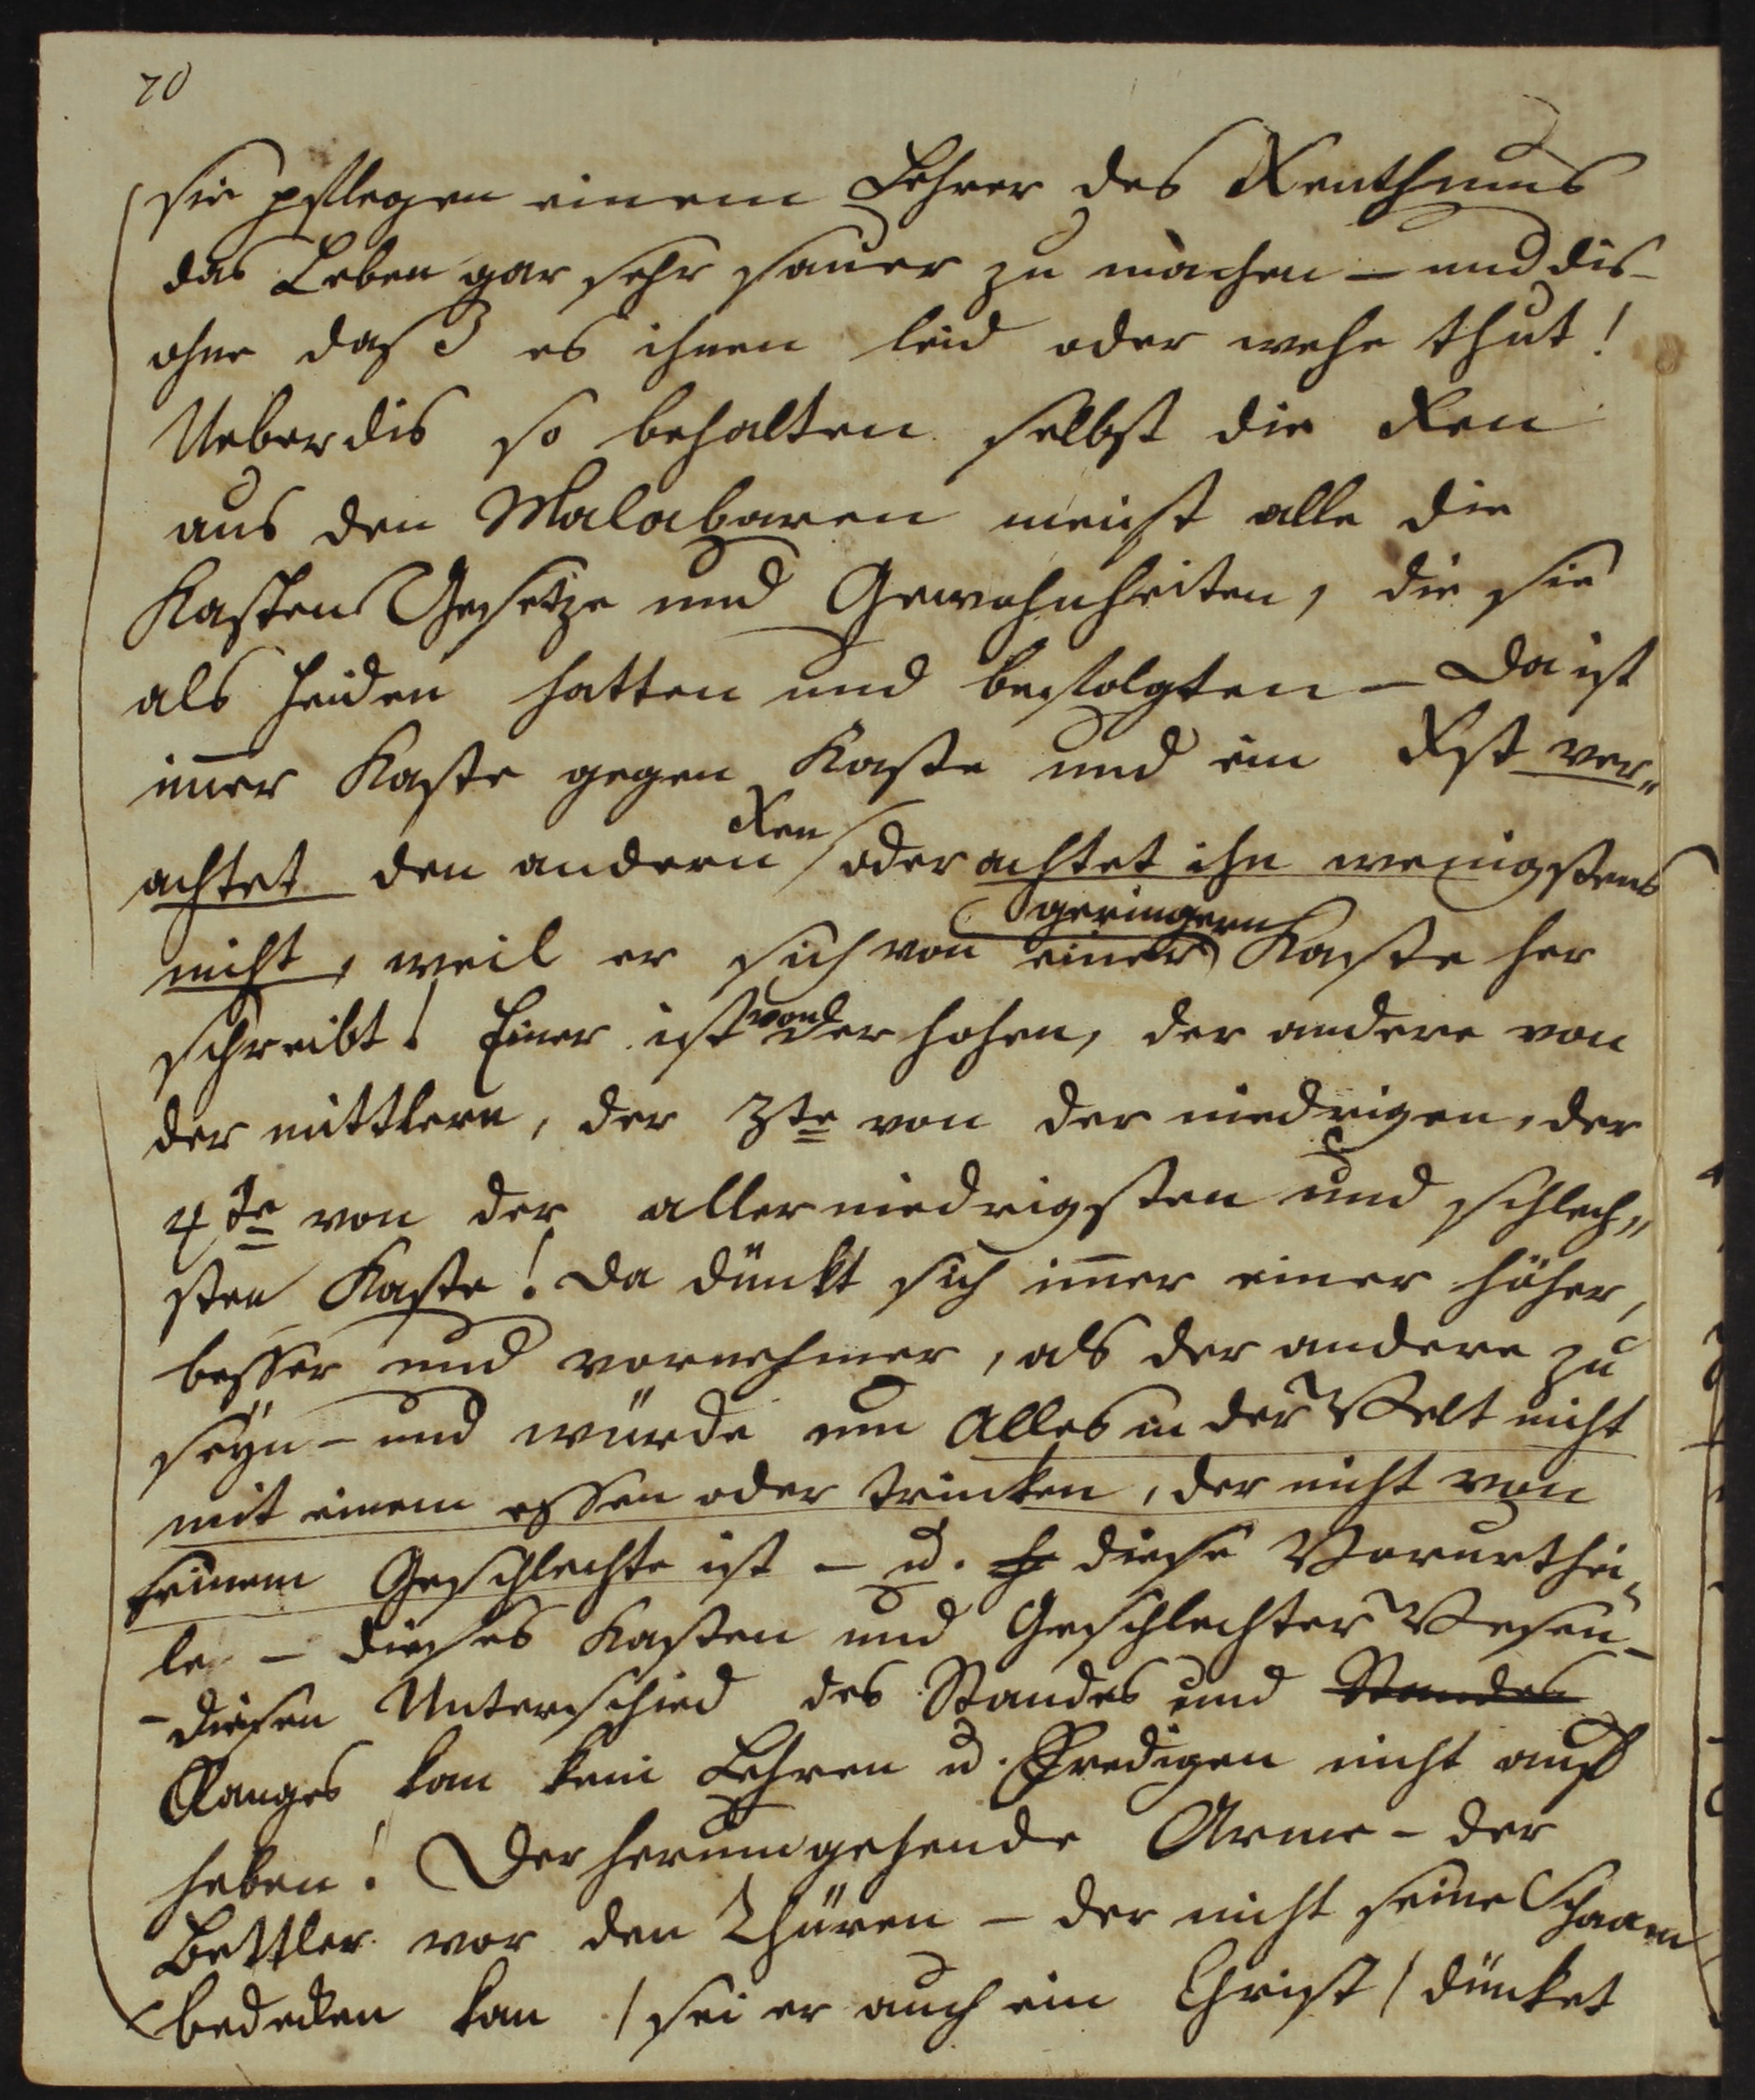 70
sie pflegen einem Lehrer des Xenthums
das Leben gar sehr sauer zu machen – und dis –
ohne daß es ihnen leid oder wehe thut!
Ueberdis so behalten selbst die Xen
aus den Malabaren meist alle die
Kasten Gesetze und Gewohnheiten, die sie
als Heiden hatten und befolgten – Da ist
im̅er Kaste gegen Kaste und ein Xst ver„
achtet den andern Xen / oder achtet ihn wenigstens
nicht, weil er sich von einer geringern Kaste her
schreibt! Einer ist von der hohen, der andere von
der mittlern, der 3te von der niedrigen, der
4te von der allerniedrigsten und schlech„
sten Kaste! Da dünkt sich im̅er einer höher,
besser und vornehmer, als der andere zu
seÿn – und würde um Alles in der Welt nicht
mit einem essen oder trinken, der nicht von
seinem Geschlechte ist – u. diese Vorurthei„
le – dieses Kasten und Geschlechter Wesen –
– diesen Unterschied des Standes und Standes
Ranges kan kein Lehren u. Predigen nicht auf
heben! Der herumgehende Arme – der
Bettler vor den Thüren – der nicht seine Schaam
bedecken kan / sei er auch ein Christ / dünket